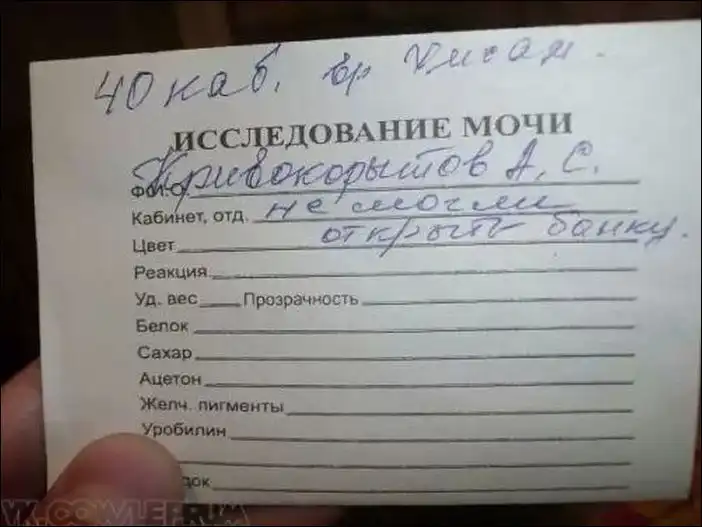 40 каб. вр
ИССЛЕДОВАНИЕ МОЧИ
Кривокорытов А. С.
Кабинет, отд. не могли
Цвет открыть банку.
Реакция
Уд. вес Прозрачность
Белок
Сахар
Ацетон
Желч. пигменты
Уробилин
док
VK.COM/LEPRUM